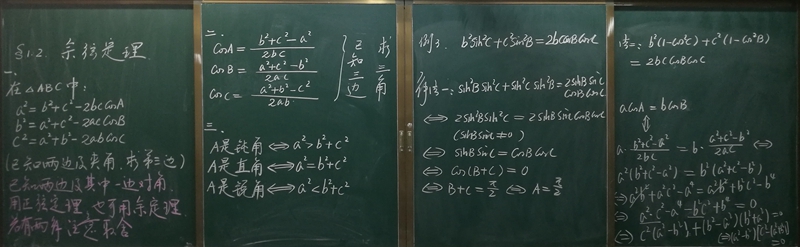 §1.2. 余弦定理
一.
在△ABC中:
a²=b²+c²-2bcCosA
b²=a²+c²-2acCosB
c²=a²+b²-2abCosC
(已知两边及夹角, 求第三边)
已知两边及其中一边对角,
用正弦定理, 也可用余定理
若有两解 注意取舍
二.
CosA = (b²+c²-a²)/(2bc)
CosB = (a²+c²-b²)/(2ac)
CosC = (a²+b²-c²)/(2ab)
已知三边
求三角
三.
A是钝角⇔a²>b²+c²
A是直角⇔a²=b²+c²
A是锐角⇔a²<b²+c²
例3. b²Sin²C+c²Sin²B=2bcCosBCosC
解法一: Sin²BSin²C+Sin²CSin²B=2SinBSinC
CosBCosC
⇔ 2Sin²BSin²C=2SinBSinCCosBCosC
(SinBSinC≠0)
⇔ SinBSinC=CosBCosC
⇔ Cos(B+C)=0
⇔ B+C=π/2 ⇔ A=π/2
法二: b²(1-Cos²C)+c²(1-Cos²B)
=2bcCosBCosC
aCosA=bCosB
⇕
a·(b²+c²-a²)/(2bc)=b·(a²+c²-b²)/(2ac) ⇔
a²(b²+c²-a²)=b²(a²+c²-b²)
⇔a²b²+a²c²-a⁴=a²b²+b²c²-b⁴
⇔a²c²-a⁴-b²c²+b⁴=0
⇔c²(a²-b²)+(b²-a²)(b²+a²)=0
⇔(a²-b²)[c²-(a²+b²)]
=0